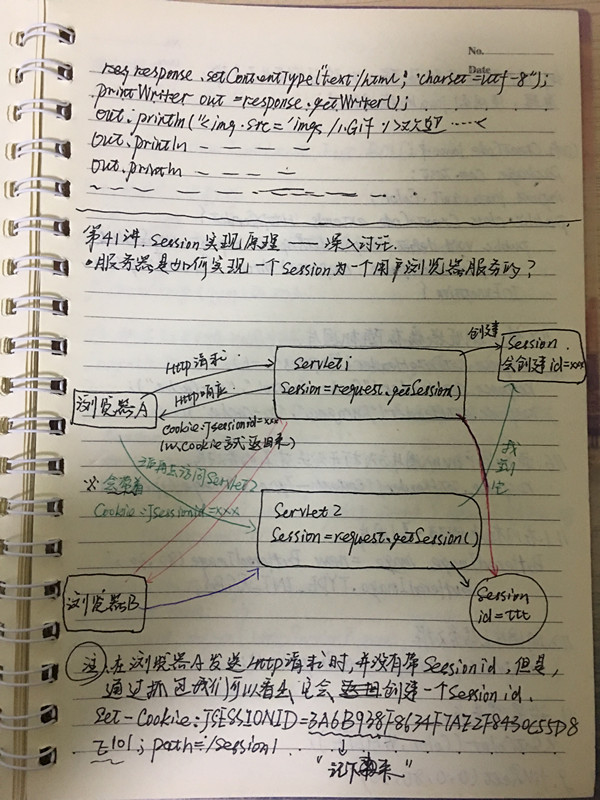 No.
Date
response.setContentType("text/html; charset=utf-8");
printWriter out =response.getWriter();
out.println("<img.src='imgs/1.Gif'/>欢迎……<
out.println — — — —
out.println — — — —
第41讲. Session实现原理 —— 深入讨论.
•服务器是如何实现一个Session为一个用户浏览器服务的?
创建
Session
会创建id=xxx
Http请求
Servlet1
Session=request.getSession()
Http响应
浏览器A
Cookie:Jsessionid=xxx
(以Cookie形式返回来)
访问Servlet2
※会带着
Cookie:Jsessionid=xxx
找
到
它
Servlet2
Session=request.getSession()
浏览器B
Session
id=ttt
注:在浏览器A发送Http请求时,并没有带Sessionid,但是,
通过抓包我们可以看出它会创建一个Session id.
Set-Cookie:JSESSIONID=3A6B938F8634F7A72F8430C55D8
E101; path=/Session1
"记下来"